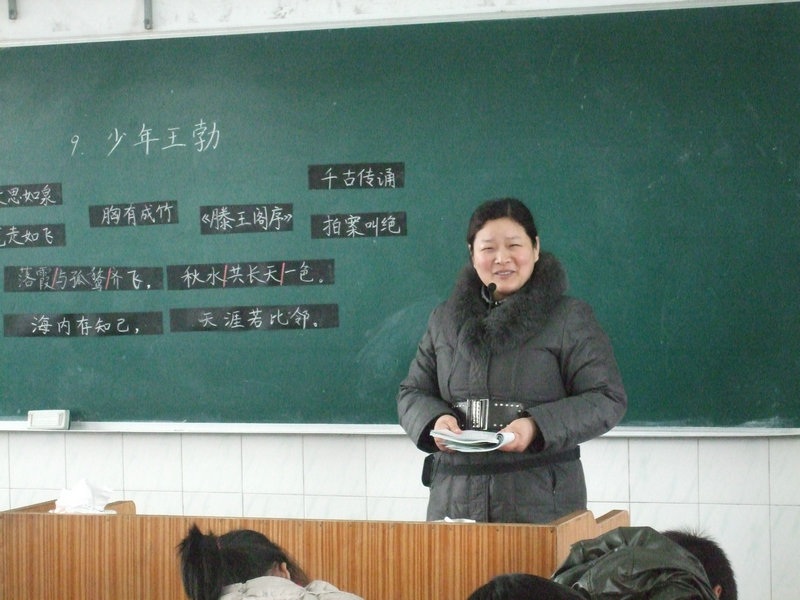 9. 少年王勃
千古传诵
思如泉
胸有成竹
《滕王阁序》
拍案叫绝
走如飞
落霞/与孤鹜/齐飞，
秋水/共长天/一色。
海内存知己，
天涯若比邻。